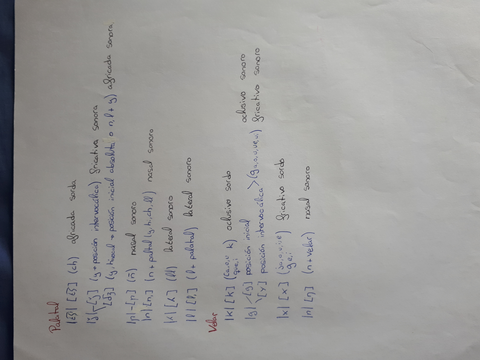 Palatal
|t͡ʃ| [t͡ʃ] (ch) africada sorda
|ʝ| [ʝ] (y → posición intervocálica) fricativa sonora
[dʒ] (y, posición inicial absoluta o n, l + y) africada sonora
|ɲ| → [ɲ] (ñ) nasal sonoro
|n| [nʲ] (n + palatal (y, hi, ch, ll)) nasal sonoro
|ʎ| [ʎ] (ll) lateral sonoro
|l| [lʲ] (l + palatal) lateral sonoro
Velar
|k| [k] (ca, co, cu, que, qui, k) oclusivo sordo
|g| [g] posición inicial oclusivo sonoro
[ɣ] posición intervocálica > (ga, go, gu, gue, gui) fricativo sonoro
|x| [x] (ja, je, ji, jo, ju, ge, gi) fricativo sordo
|n| [ŋ] (n + velar) nasal sonoro